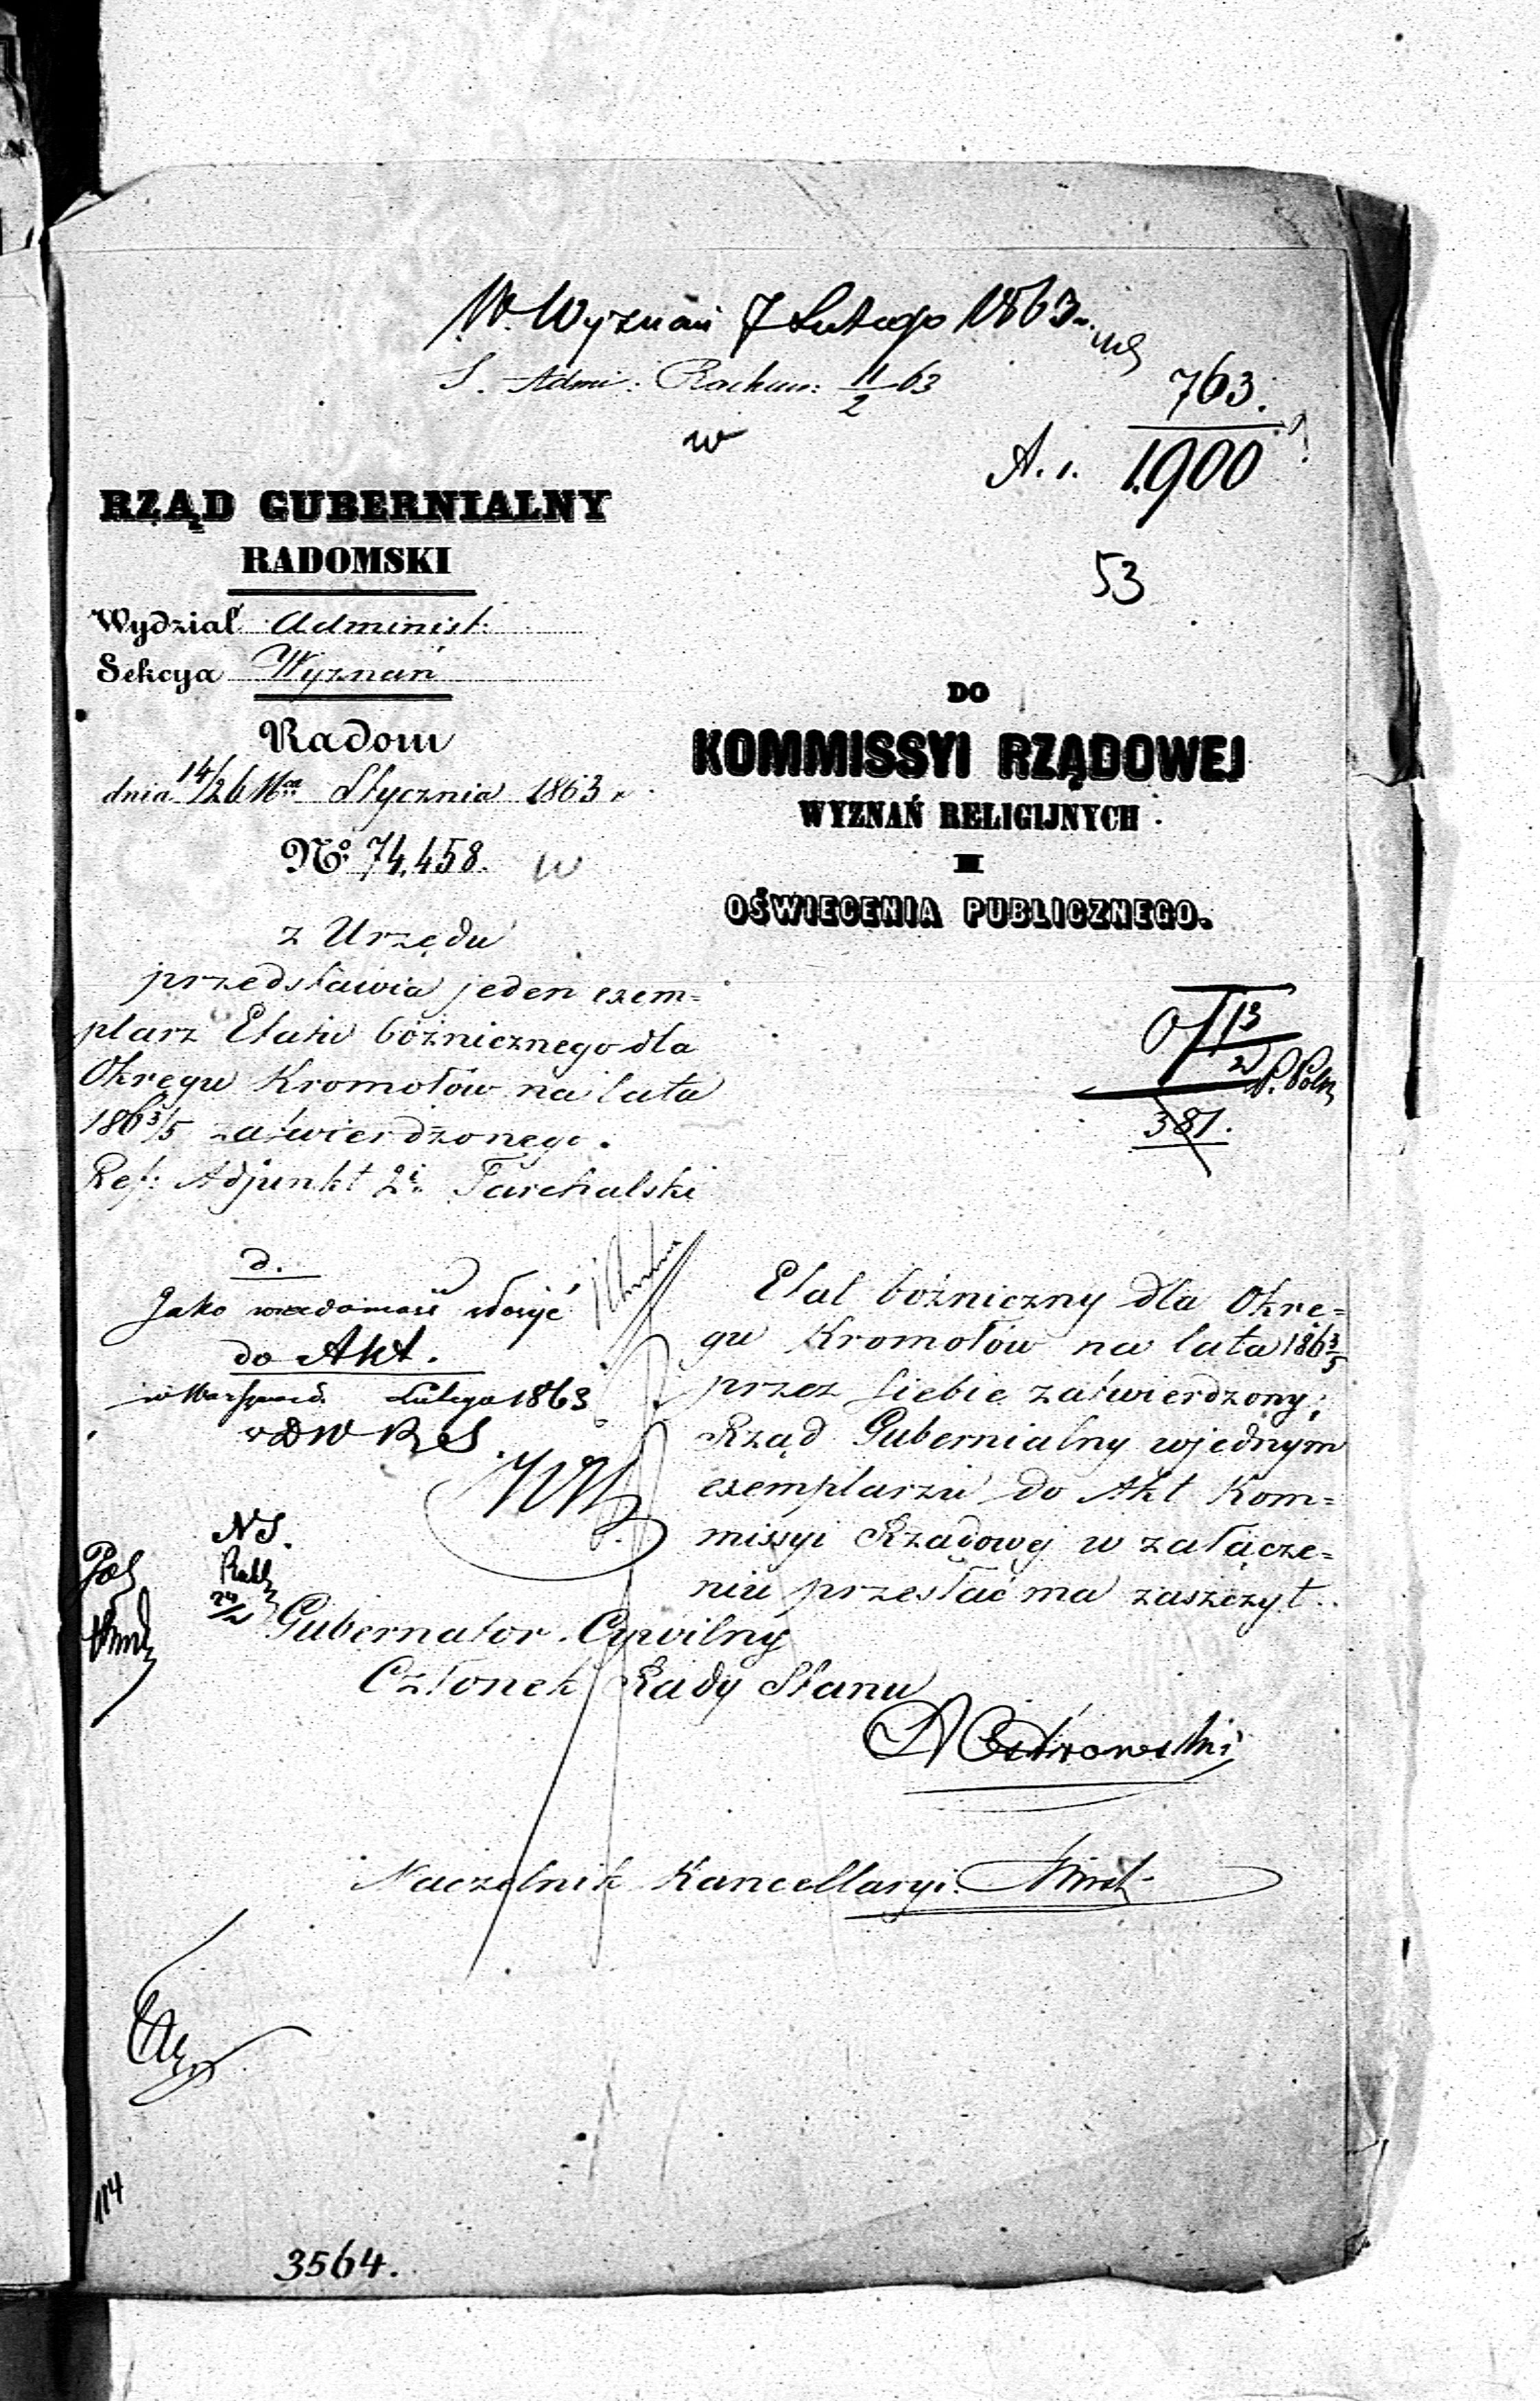 W. Wyznań 7 Lutego 1863
S. Admi: Rachun: 11/2 63
763.
A. i. 1900
53
RZĄD GUBERNIALNY
RADOMSKI
Wydział Administ:
Sekcya Wyznań
Radom
dnia 14/26 Stycznia 1863 r.
No: 74,458.
z Urzędu
przedstawia jeden exem=
plarz Etatu bóżnicznego dla
Okręgu Kromołów na lata
1863/5 zatwierdzonego.
Ref: Adjunkt 2i. Tarchalski
DO
KOMMISSYI RZĄDOWEJ
WYZNAŃ RELIGIJNYCH
I
OŚWIECENIA PUBLICZNEGO.
13
2
381.
d.
Jako wiadomość złożyć
do Akt.
w Warszawie Lutego 1863
Etat bóżniczny dla Okrę=
gu Kromołów na lata 1863/5
przez siebie zatwierdzony,
Rząd Gubernialny w jednym
exemplarzu do Akt Kom=
missyi Rządowej w załącze=
niu przesłać ma zaszczyt.
NS.
Gubernator Cywilny
Członek Rady Stanu
Ostrowski
Naczelnik Kancellaryi
114
3564.